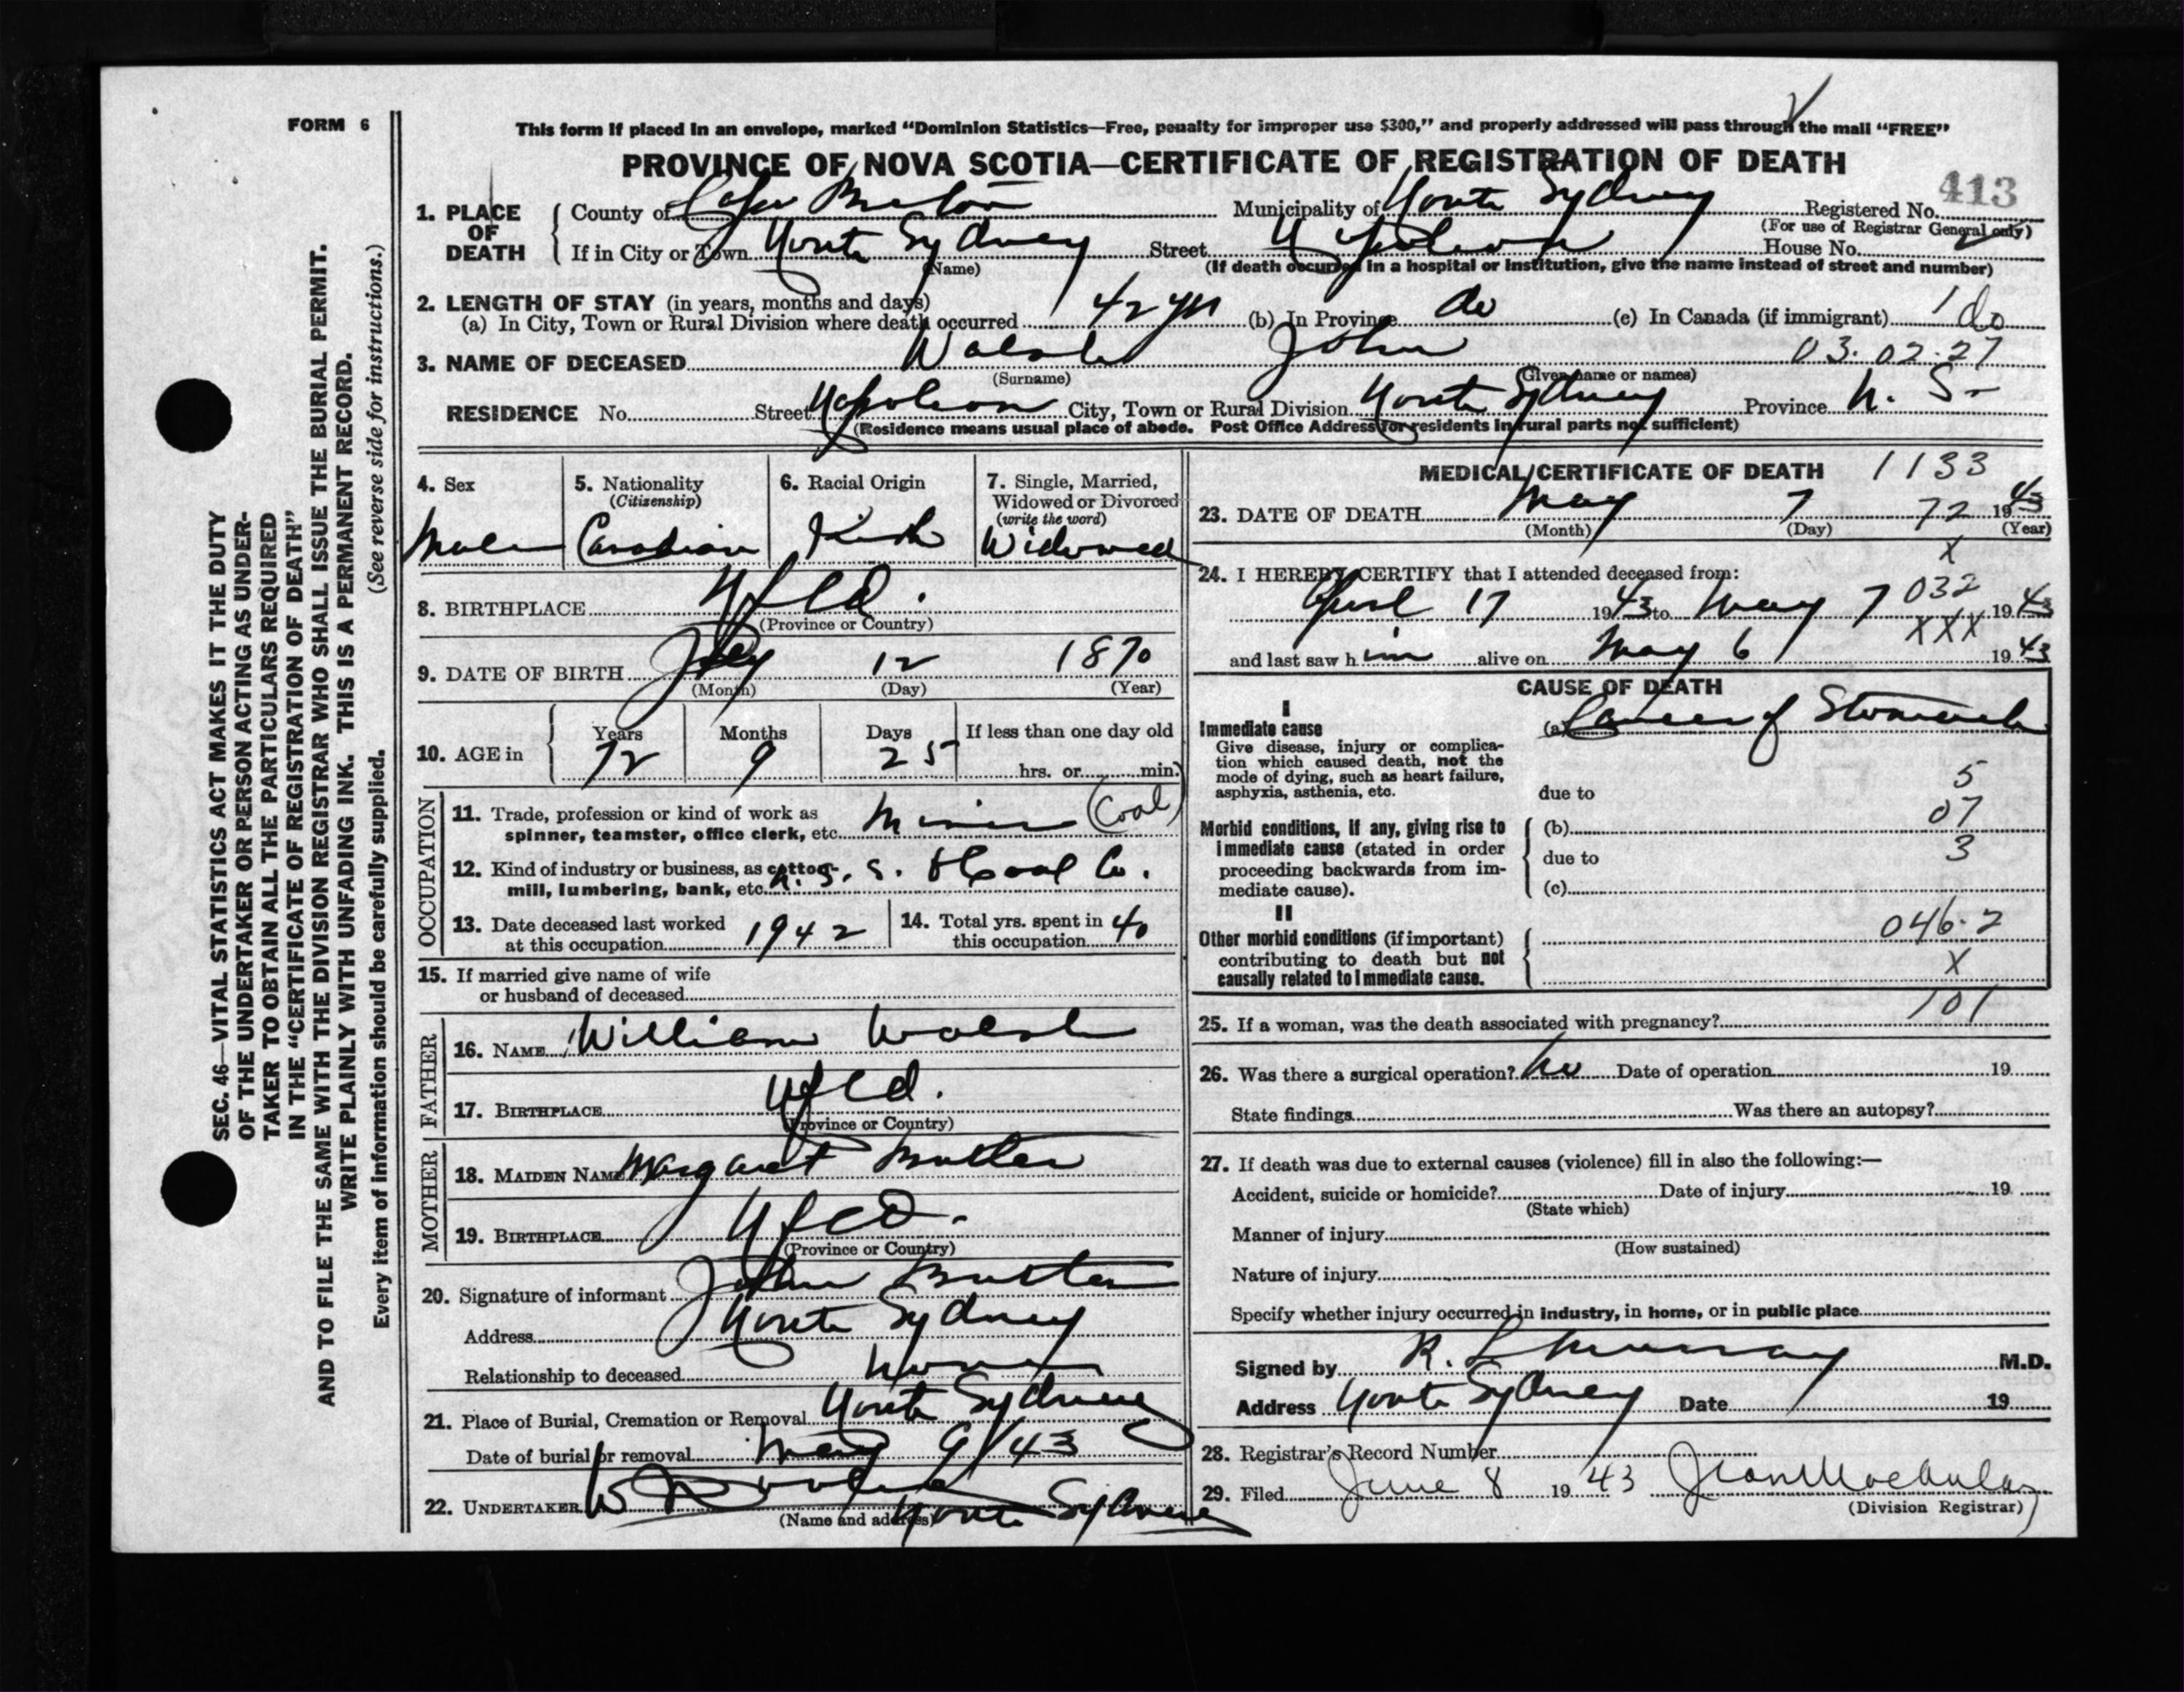 FORM 6
This form if placed in an envelope, marked "Dominion Statistics—Free, penalty for improper use $300," and properly addressed will pass through the mail "FREE"
PROVINCE OF NOVA SCOTIA—CERTIFICATE OF REGISTRATION OF DEATH
413
1. PLACE OF DEATH
County of Cape Breton Municipality of North Sydney Registered No.
(For use of Registrar General only)
If in City or Town North Sydney Street Napoleon House No.
(Name)
(If death occurred in a hospital or institution, give the name instead of street and number)
2. LENGTH OF STAY (in years, months and days)
(a) In City, Town or Rural Division where death occurred 42 yrs (b) In Province do (c) In Canada (if immigrant) 1 do
3. NAME OF DECEASED Walsh John 03.02.27
(Surname) (Given name or names)
RESIDENCE No. Street Napoleon City, Town or Rural Division North Sydney Province N. S.
(Residence means usual place of abode. Post Office Address for residents in rural parts not sufficient)
4. Sex
Male
5. Nationality
(Citizenship)
Canadian
6. Racial Origin
Irish
7. Single, Married,
Widowed or Divorced
(write the word)
Widowed
8. BIRTHPLACE Nfld.
(Province or Country)
9. DATE OF BIRTH July 12 1870
(Month) (Day) (Year)
10. AGE in
Years Months Days If less than one day old
72 9 25 hrs. or min.
OCCUPATION
11. Trade, profession or kind of work as
spinner, teamster, office clerk, etc. Miner (Coal)
12. Kind of industry or business, as cotton-
mill, lumbering, bank, etc. N. S. S. & Coal Co.
13. Date deceased last worked
at this occupation 1942
14. Total yrs. spent in
this occupation 40
15. If married give name of wife
or husband of deceased
FATHER
16. NAME William Walsh
17. BIRTHPLACE Nfld.
(Province or Country)
MOTHER
18. MAIDEN NAME Margaret
19. BIRTHPLACE Nfld.
(Province or Country)
20. Signature of informant John
Address North Sydney
Relationship to deceased
21. Place of Burial, Cremation or Removal North Sydney
Date of burial or removal May 9/43
22. UNDERTAKER
(Name and address) North Sydney
MEDICAL CERTIFICATE OF DEATH 1133
23. DATE OF DEATH May 7 72 1943
(Month) (Day) (Year)
X
24. I HEREBY CERTIFY that I attended deceased from:
032
April 17 1943 to May 7 1943
XXX
and last saw him alive on May 6 1943
CAUSE OF DEATH
I
Immediate cause
Give disease, injury or complica-
tion which caused death, not the
mode of dying, such as heart failure,
asphyxia, asthenia, etc.
(a) Cancer of Stomach
5
due to
07
Morbid conditions, if any, giving rise to
immediate cause (stated in order
proceeding backwards from im-
mediate cause).
(b)
due to 3
(c)
II
Other morbid conditions (if important)
contributing to death but not
causally related to immediate cause.
046.2
X
101
25. If a woman, was the death associated with pregnancy?
26. Was there a surgical operation? No Date of operation 19
State findings Was there an autopsy?
27. If death was due to external causes (violence) fill in also the following:—
Accident, suicide or homicide? Date of injury 19
(State which)
Manner of injury
(How sustained)
Nature of injury
Specify whether injury occurred in industry, in home, or in public place
Signed by R. Murray M.D.
Address North Sydney Date 19
28. Registrar's Record Number
29. Filed June 8 1943 Jean
(Division Registrar)
SEC. 46—VITAL STATISTICS ACT MAKES IT THE DUTY
OF THE UNDERTAKER OR PERSON ACTING AS UNDER-
TAKER TO OBTAIN ALL THE PARTICULARS REQUIRED
IN THE "CERTIFICATE OF REGISTRATION OF DEATH"
AND TO FILE THE SAME WITH THE DIVISION REGISTRAR WHO SHALL ISSUE THE BURIAL PERMIT.
WRITE PLAINLY WITH UNFADING INK. THIS IS A PERMANENT RECORD.
Every item of information should be carefully supplied. (See reverse side for instructions.)